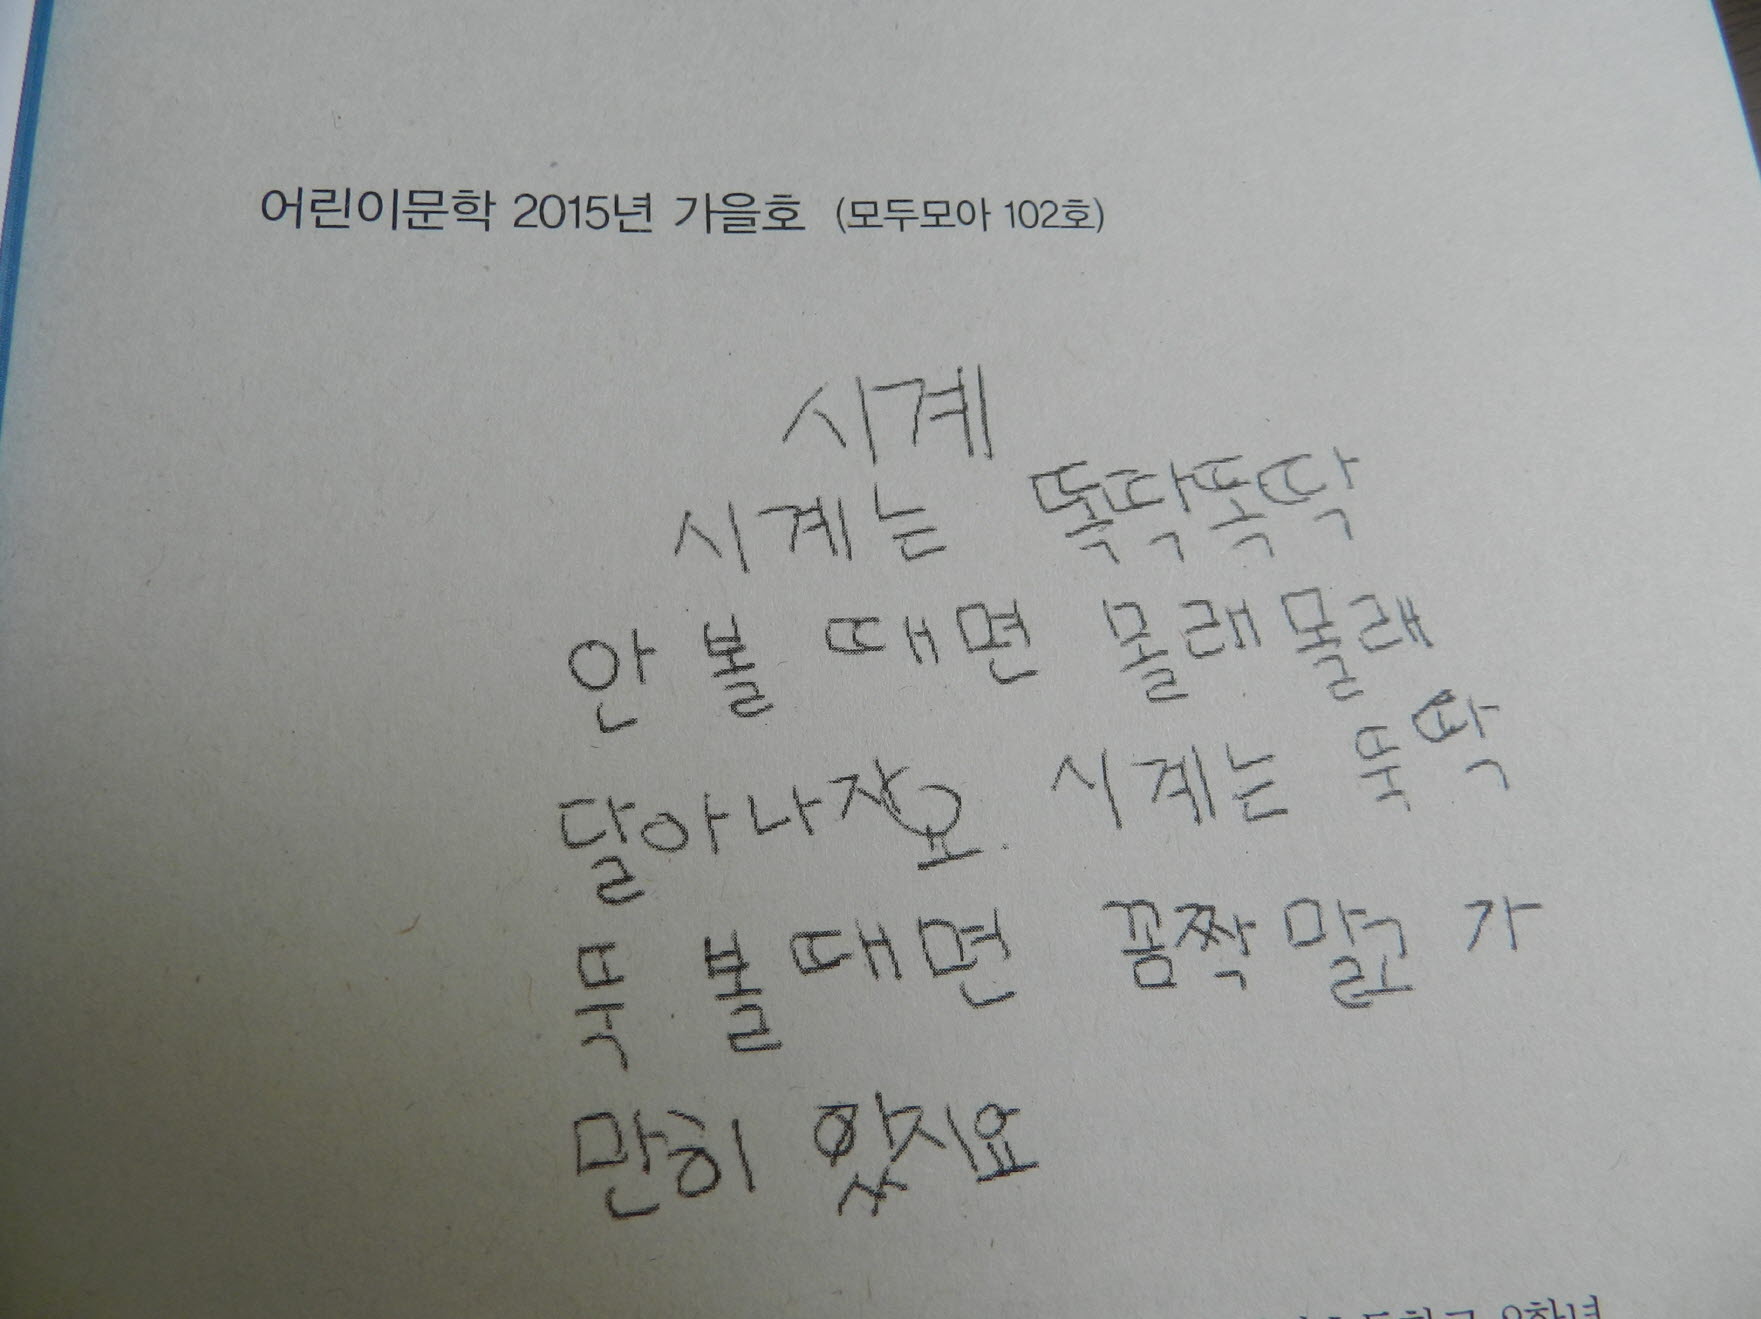 어린이문학 2015년 가을호 (모두모아 102호)
시계
시계는 똑딱똑딱
안 볼 때면 몰래몰래
달아나자요. 시계는 뚝딱
뚝 볼때면 꼼짝말고 가
만히 핬지요